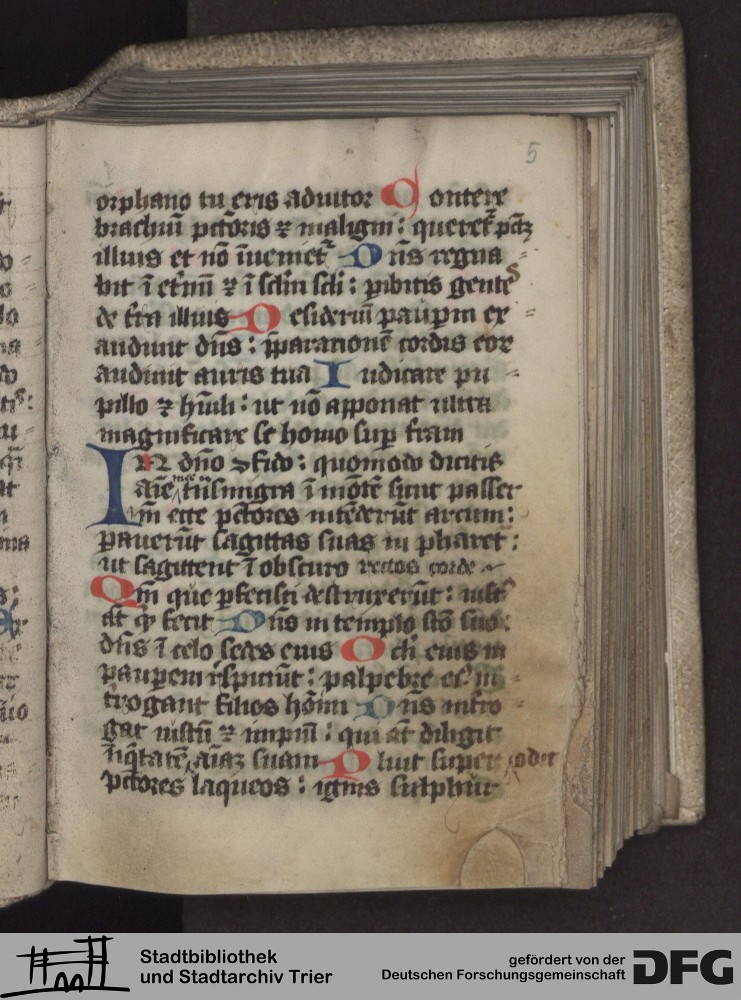 5
orphano tu eris adiutor Contere
brachiu᷑ pctōris ⁊ maligni : queret᷑ pctm̄
illius et nō īueniet᷑ Dn̄s regna
bit ī et᷑nū ⁊ ī sclm̄ scl̄i : ꝑibitis gentes
de t᷑ra illius Desideriū pauꝑm ex
audiuit dn̄s : p̄parationē cordis eoꝝ
audiuit auris tua Iudicare pu
pillo ⁊ hūili : ut nō apponat ultra
magnificare se homo suꝑ t᷑ram
In dn̄o ꝯfido : quomodo dicitis
aīe mee t᷑nsmigra ī mōtē sicut passer
Qm̄ ecce pctōres intēderūt arcum :
pauerūt sagittas suas in pharet᷑ :
ut sagittent ī obscuro rectos corde
Qm̄ que ꝑfecisti destruxerūt : iust᷑
at᷑ qͥ fecit Dn̄s in templo scō suo :
dn̄s ī celo sedes eius Ocl̄i eius in
pauperem respiciūt : palpebre eiꝰ in
terrogant filios hōim Dn̄s intro
gat iustū ⁊ impiū : qui at᷑ diligit
īiqͥtatē aīaꝫ suam odit Pluit super
pctōres laqueos : ignis sulphur
Stadtbibliothek
und Stadtarchiv Trier
gefördert von der
Deutschen Forschungsgemeinschaft
DFG